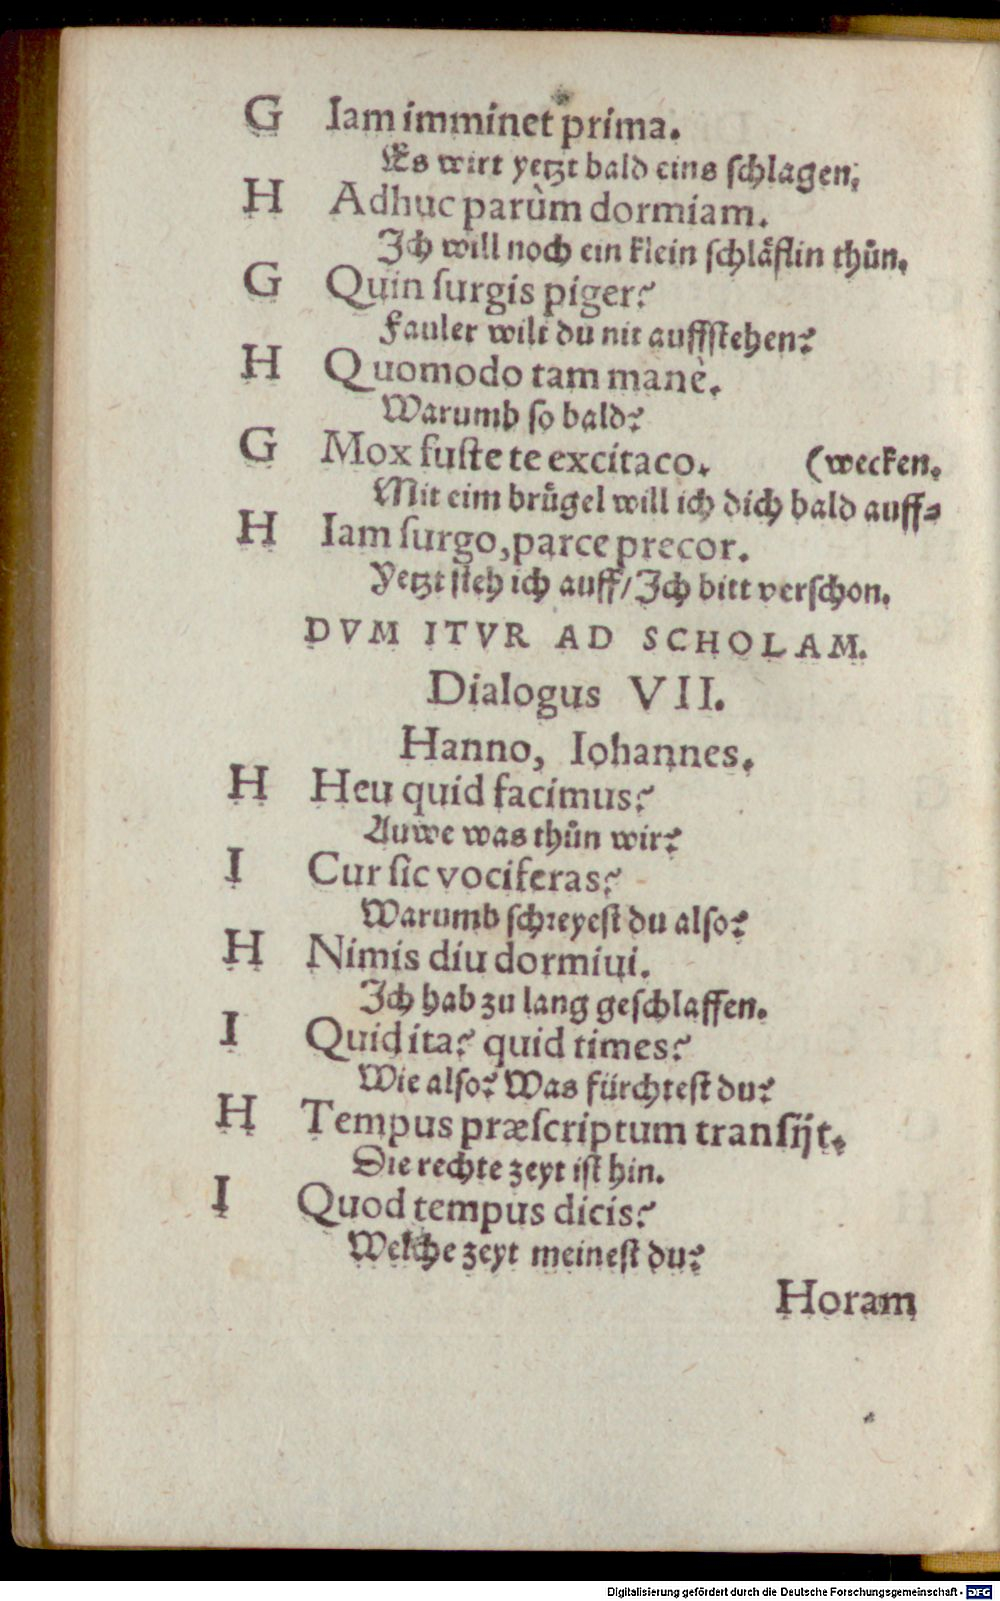 G Iam imminet prima.
Es wirt yetzt bald eins schlagen.
H Adhuc parùm dormiam.
Ich will noch ein klein schläflin thůn.
G Quin surgis piger?
Fauler wilt du nit auffstehen?
H Quomodo tam manè.
Warumb so bald?
G Mox fuste te excitaco. (wecken.
Mit eim brügel will ich dich bald auff-
H Iam surgo, parce precor.
Yetzt steh ich auff/ Ich bitt verschon.
DVM ITVR AD SCHOLAM.
Dialogus VII.
Hanno, Iohannes.
H Heu quid facimus?
Auwe was thůn wir?
I Cur sic vociferas?
Warumb schreyest du also?
H Nimis diu dormiui.
Ich hab zu lang geschlaffen.
I Quid ita? quid times?
Wie also? Was fürchtest du?
H Tempus præscriptum transijt.
Die rechte zeyt ist hin.
I Quod tempus dicis?
Welche zeyt meinest du?
Horam
Digitalisierung gefördert durch die Deutsche Forschungsgemeinschaft - DFG